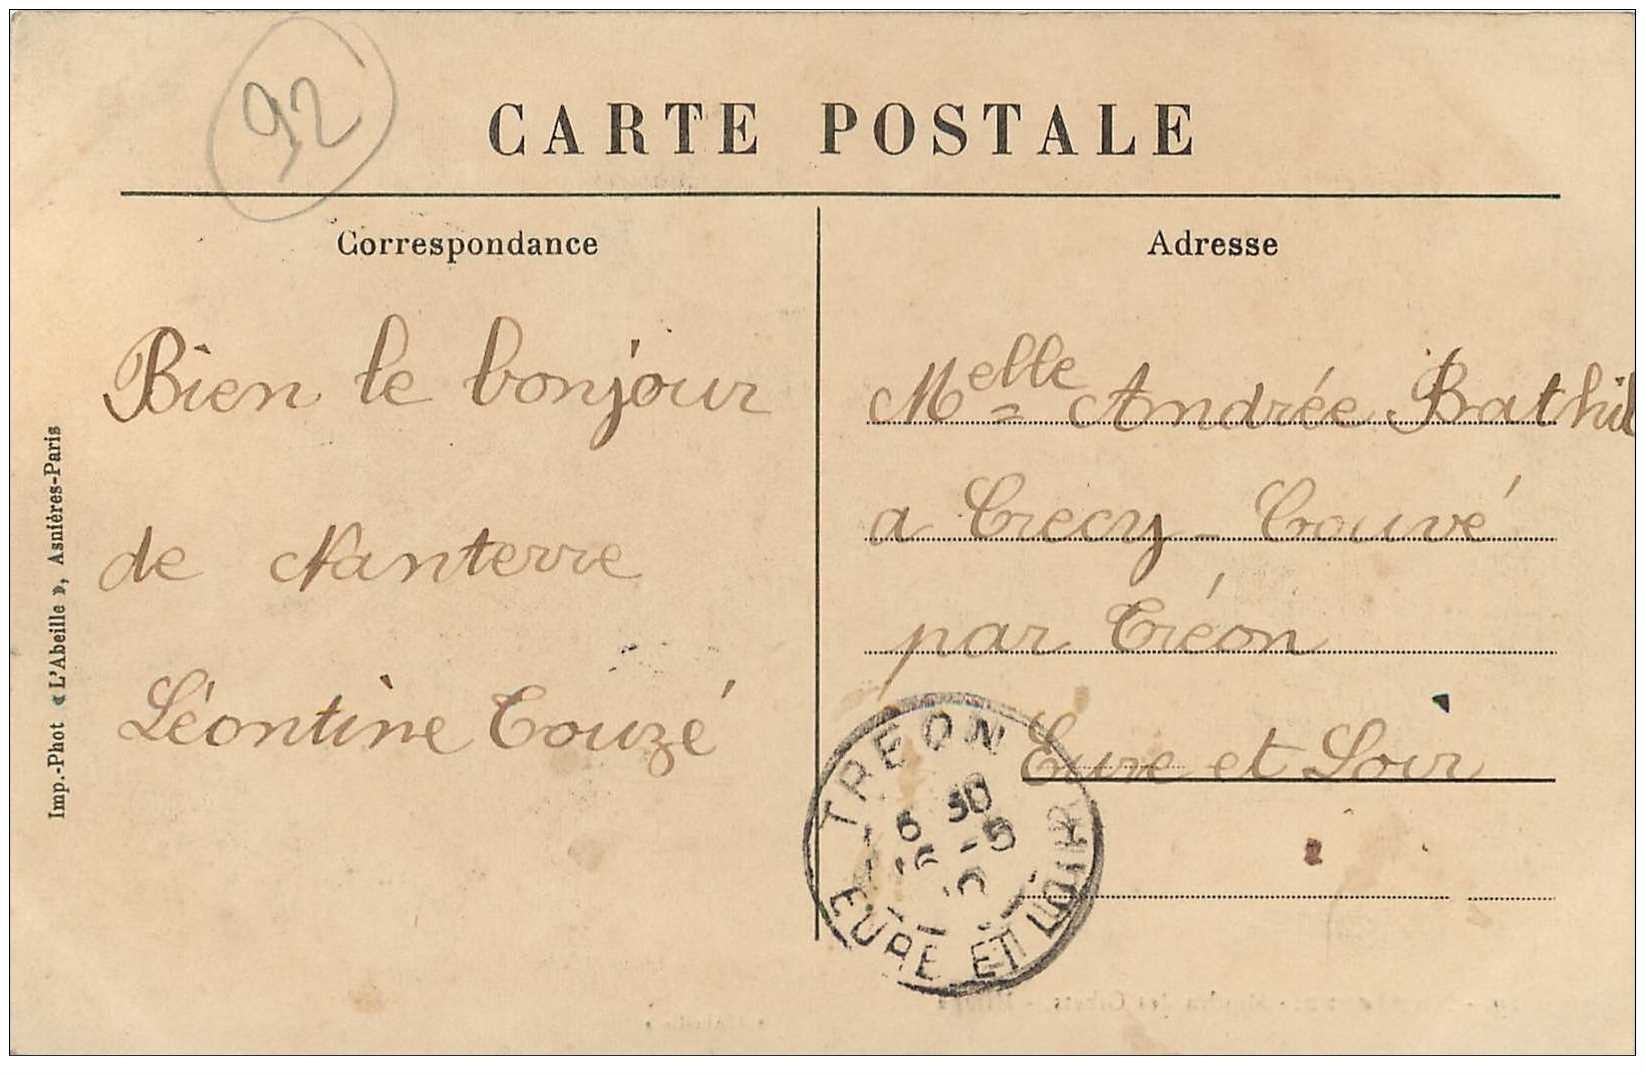 92
CARTE POSTALE
Correspondance
Bien le bonjour
de Nanterre
Léontine Touzé
Adresse
Melle Andrée Bathil
a Crecy - Couvé
par Tréon
Eure et Loir
TREON
EURE ET LOIR
Imp.-Phot « L'Abeille », Asnières-Paris